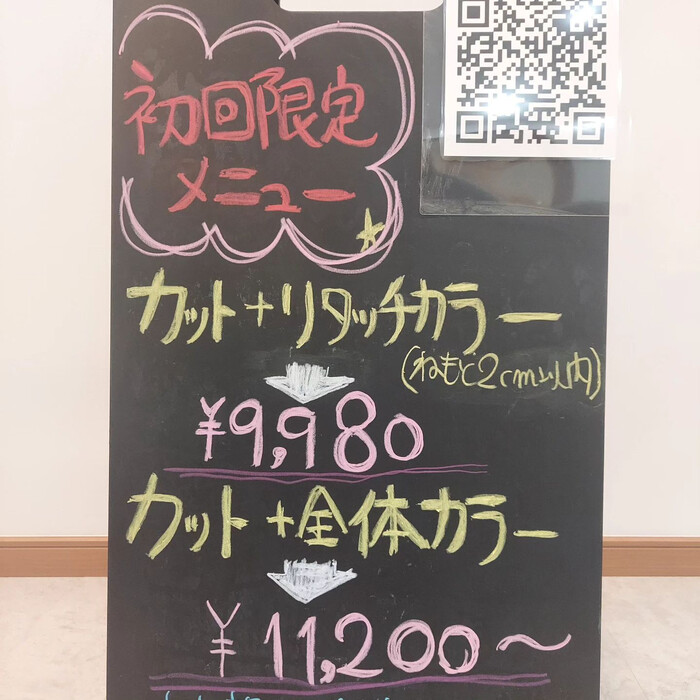 初回限定
メニュー
カット+リタッチカラー
(ねもと2cm以内)
¥9,980
カット+全体カラー
¥11,200〜